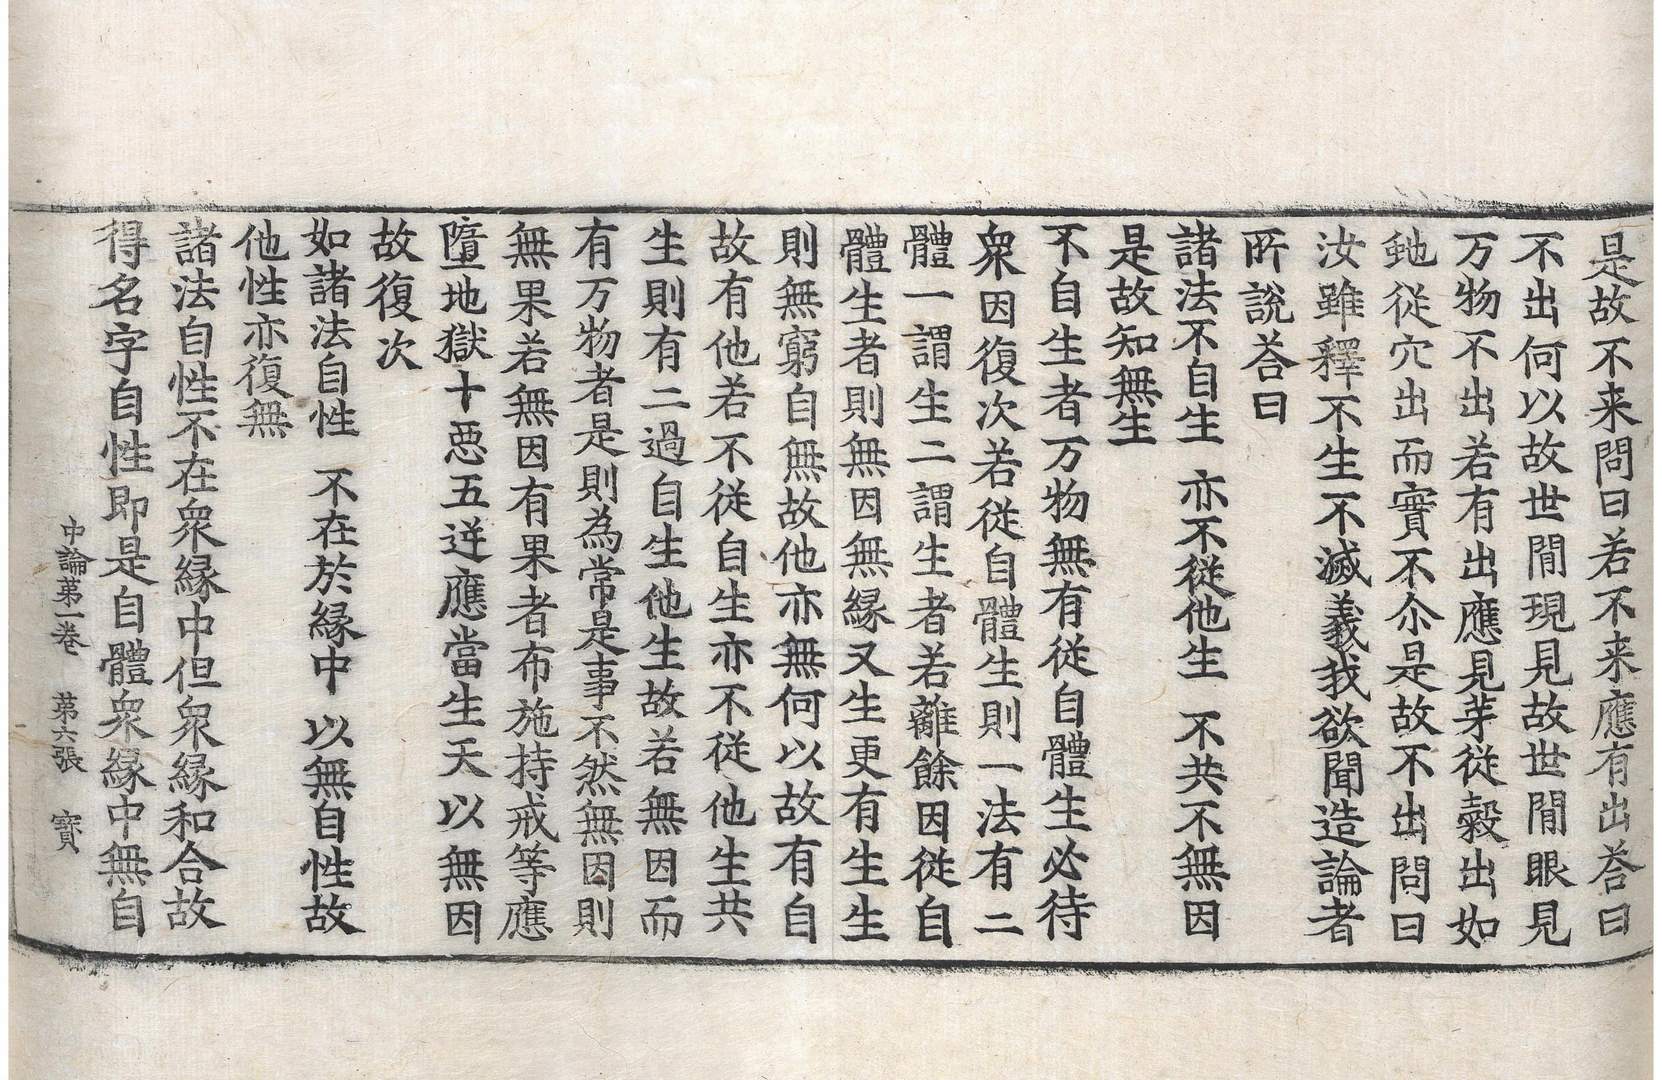 是故不来問曰若不来應有出荅曰
不出何以故世間現見故世間眼見
万物不出若有出應見芽從糓出如
虵從穴出而實不尒是故不出問曰
汝雖釋不生不滅義我欲聞造論者
所說荅曰
諸法不自生 亦不從他生 不共不無因
是故知無生
不自生者万物無有從自體生必待
衆因復次若從自體生則一法有二
體一謂生二謂生者若離餘因從自
體生者則無因無縁又生更有生生
則無窮自無故他亦無何以故有自
故有他若不從自生亦不從他生共
生則有二過自生他生故若無因而
有万物者是則為常是事不然無因則
無果若無因有果者布施持戒等應
墮地獄十惡五逆應當生天以無因
故復次
如諸法自性 不在於縁中 以無自性故
他性亦復無
諸法自性不在衆縁中但衆縁和合故
得名字自性即是自體衆縁中無自
中論第一卷 第六張 寳